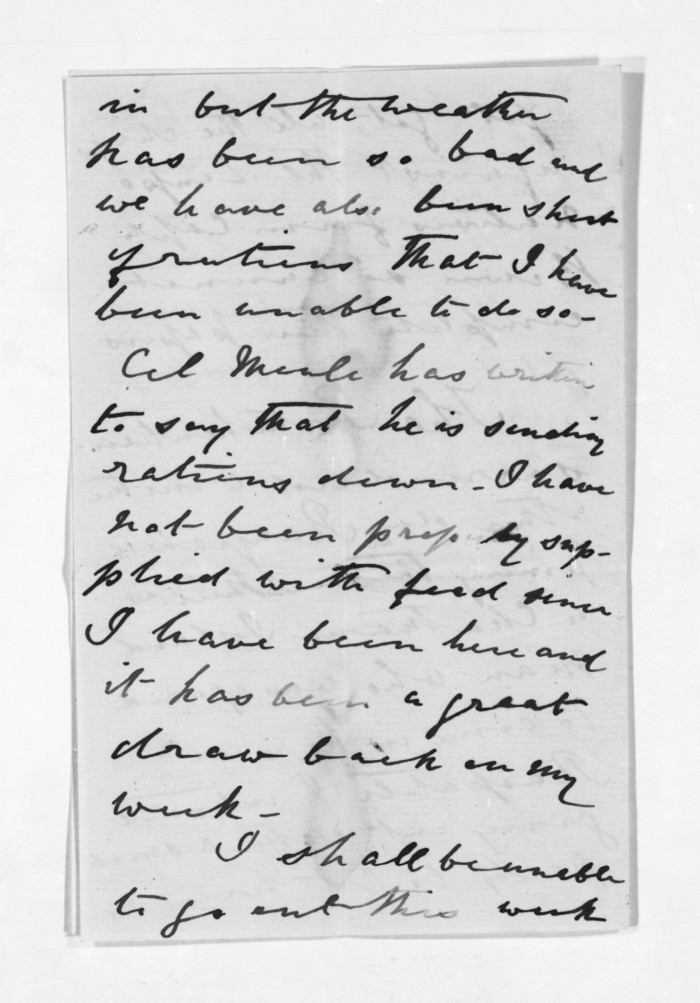 in but the weather
has been so bad and
we have also been short
of rations that I have
been unable to do so -
Col has written
to say that he is sending
rations down - I have
not been properly sup-
plied with feed since
I have been here and
it has been a great
draw back on my
work -
I shall be unable
to go out this week